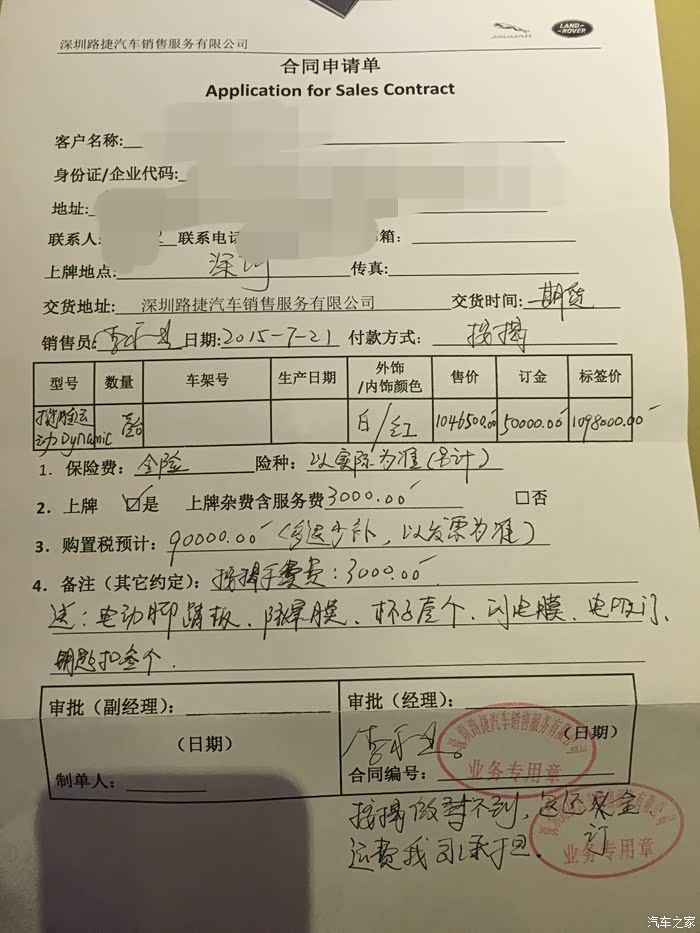 JAGUAR LAND-ROVER
深圳路捷汽车销售服务有限公司
合同申请单
Application for Sales Contract
客户名称:
身份证/企业代码:
地址:
联系人: 联系电话 邮箱:
上牌地点: 深圳 传真:
交货地址: 深圳路捷汽车销售服务有限公司 交货时间: 期货
销售员: 日期: 2015-7-21 付款方式: 按揭
型号 数量 车架号 生产日期 外饰/内饰颜色 售价 订金 标签价
动Dynamic 壹台 白/红 1046500.00 50000.00 1098000.00
1. 保险费: 全险 险种: 以实际为准(另计)
2. 上牌 ☑是 上牌杂费含服务费3000.00 □否
3. 购置税预计: 90000.00 (多退少补, 以发票为准)
4. 备注(其它约定): 按揭手续费: 3000.00
送: 电动脚踏板、防爆膜、杯子壹个、闪电膜、电吸门、
钥匙扣叁个.
审批(副经理): 审批(经理):
(日期) (日期)
制单人: 合同编号:
深圳路捷汽车销售服务有限公司
业务专用章
按揭做 不到, 退还 订金
运费我司承担.
深圳路捷汽车销售服务有限公司
业务专用章
汽车之家